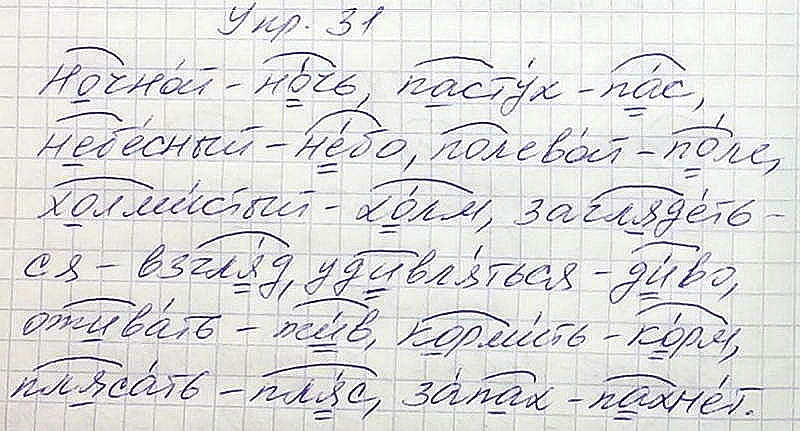 Упр. 31
Ночно́й - но́чь, пасту́х - па́с,
небе́сный - не́бо, полево́й - по́ле,
холми́стый - хо́лм, загляде́ть-
ся - взгля́д, удивля́ться - ди́во,
ожива́ть - жи́в, корми́ть - ко́рм,
пляса́ть - пля́с, за́пах - пахне́т.